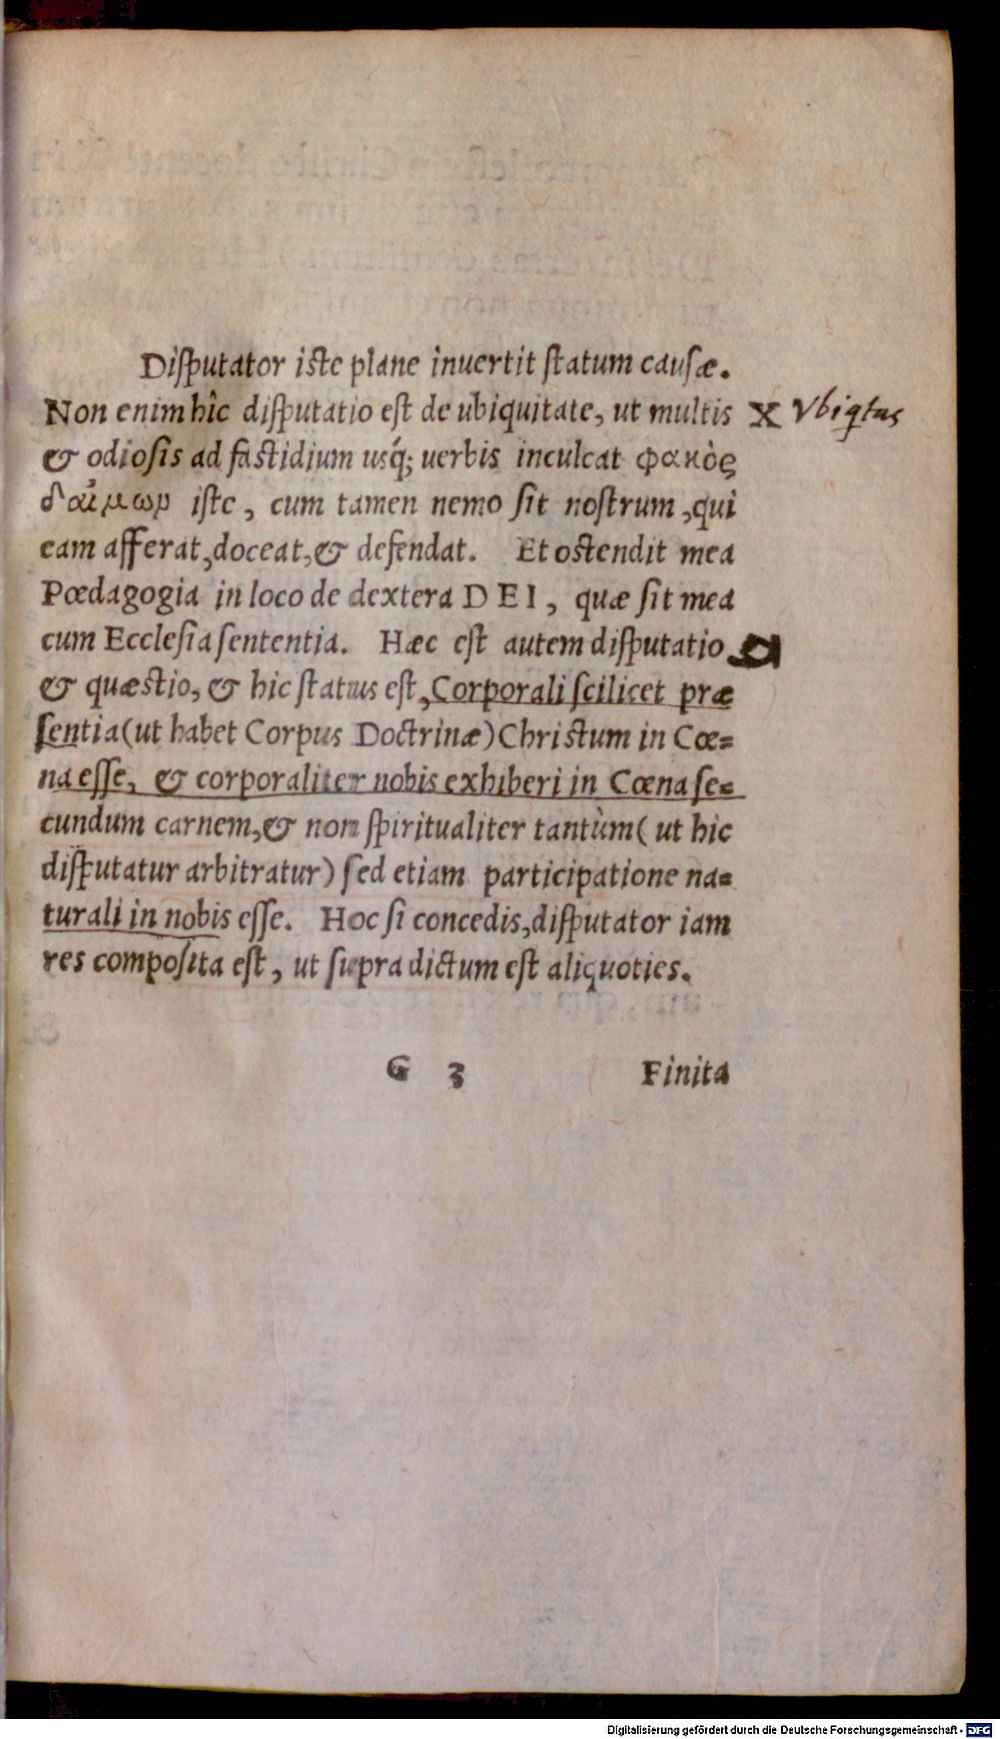 Disputator iste plane inuertit statum causæ.
Non enim hîc disputatio est de ubiquitate, ut multis X Vbiq̃tas
& odiosis ad fastidium usq́; uerbis inculcat φακὸς
δαίμων iste, cum tamen nemo sit nostrum, qui
eam afferat, doceat, & defendat. Et ostendit mea
Pœdagogia in loco de dextera DEI, quæ sit mea
cum Ecclesia sententia. Hæc est autem disputatio
& quæstio, & hic status est, Corporali scilicet præ
sentia (ut habet Corpus Doctrinæ) Christum in Cœ=
na esse, & corporaliter nobis exhiberi in Cœna se=
cundum carnem, & non spiritualiter tantùm (ut hic
disputatur arbitratur) sed etiam participatione na=
turali in nobis esse. Hoc si concedis, disputator iam
res composita est, ut supra dictum est aliquoties.
G 3 Finita
Digitalisierung gefördert durch die Deutsche Forschungsgemeinschaft - DFG